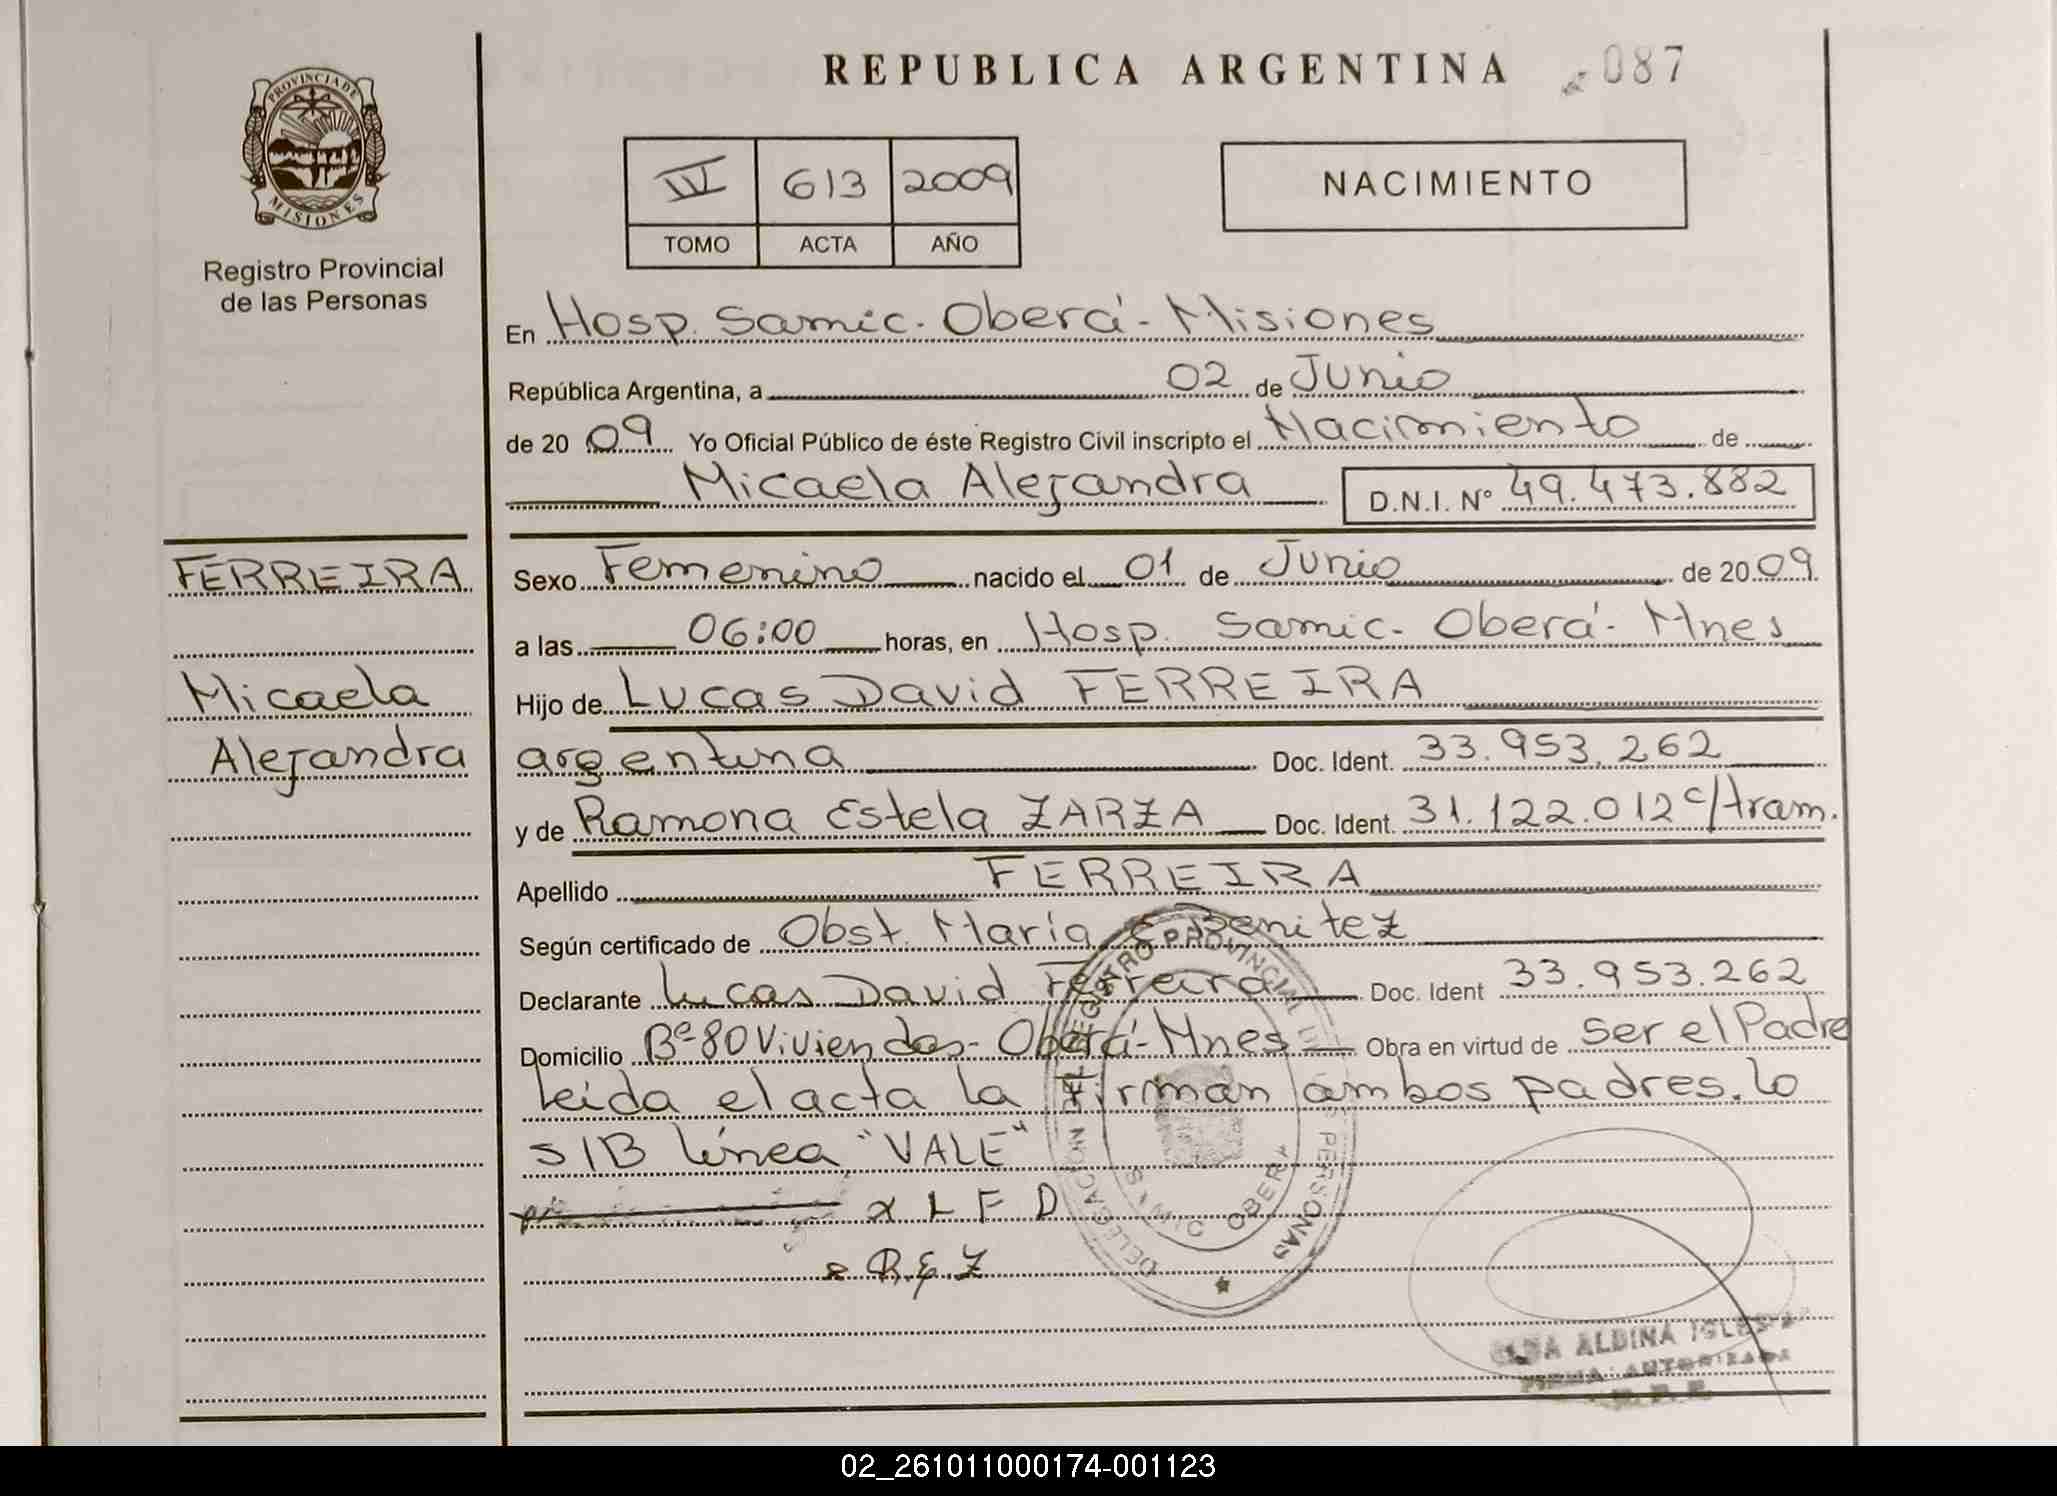 REPUBLICA ARGENTINA 087
PROVINCIA DE MISIONES
Registro Provincial
de las Personas
613 2009
TOMO ACTA AÑO
NACIMIENTO
En Hosp. Samic. Oberá - Misiones
República Argentina, a 02 de Junio
de 20 09 Yo Oficial Público de éste Registro Civil inscripto el Nacimiento de
Micaela Alejandra D.N.I. N° 49.473.882
FERREIRA
Micaela
Alejandra
Sexo Femenino nacido el 01 de Junio de 20 09
a las 06:00 horas, en Hosp. Samic - Oberá - Mnes
Hijo de Lucas David FERREIRA
argentina Doc. Ident. 33.953.262
y de Ramona Estela ZARZA Doc. Ident. 31.122.012 c/tram.
Apellido FERREIRA
Según certificado de Obst. María E Benitez
Declarante Lucas David Ferreira Doc. Ident 33.953.262
Domicilio Bº 80 Viviendas - Oberá - Mnes Obra en virtud de Ser el Padre
leída el acta la firman ambos padres. lo
S/B línea "VALE"
x L F D
R.E.Z
DELEGACION DEL REGISTRO PROVINCIAL DE LAS PERSONAS
SAMIC OBERA
ALBINA IGLESIAS
FIRMA AUTORIZADA
02_261011000174-001123